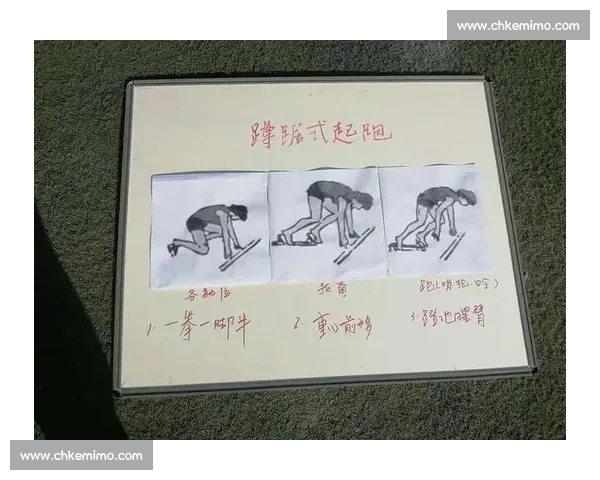 www.chkemimo.com
蹲踞式起跑
各就位
预备
跑(哨抢、口令)
1、一拳一脚半
2、重心前移
3、蹬地摆臂
www.chkemimo.com